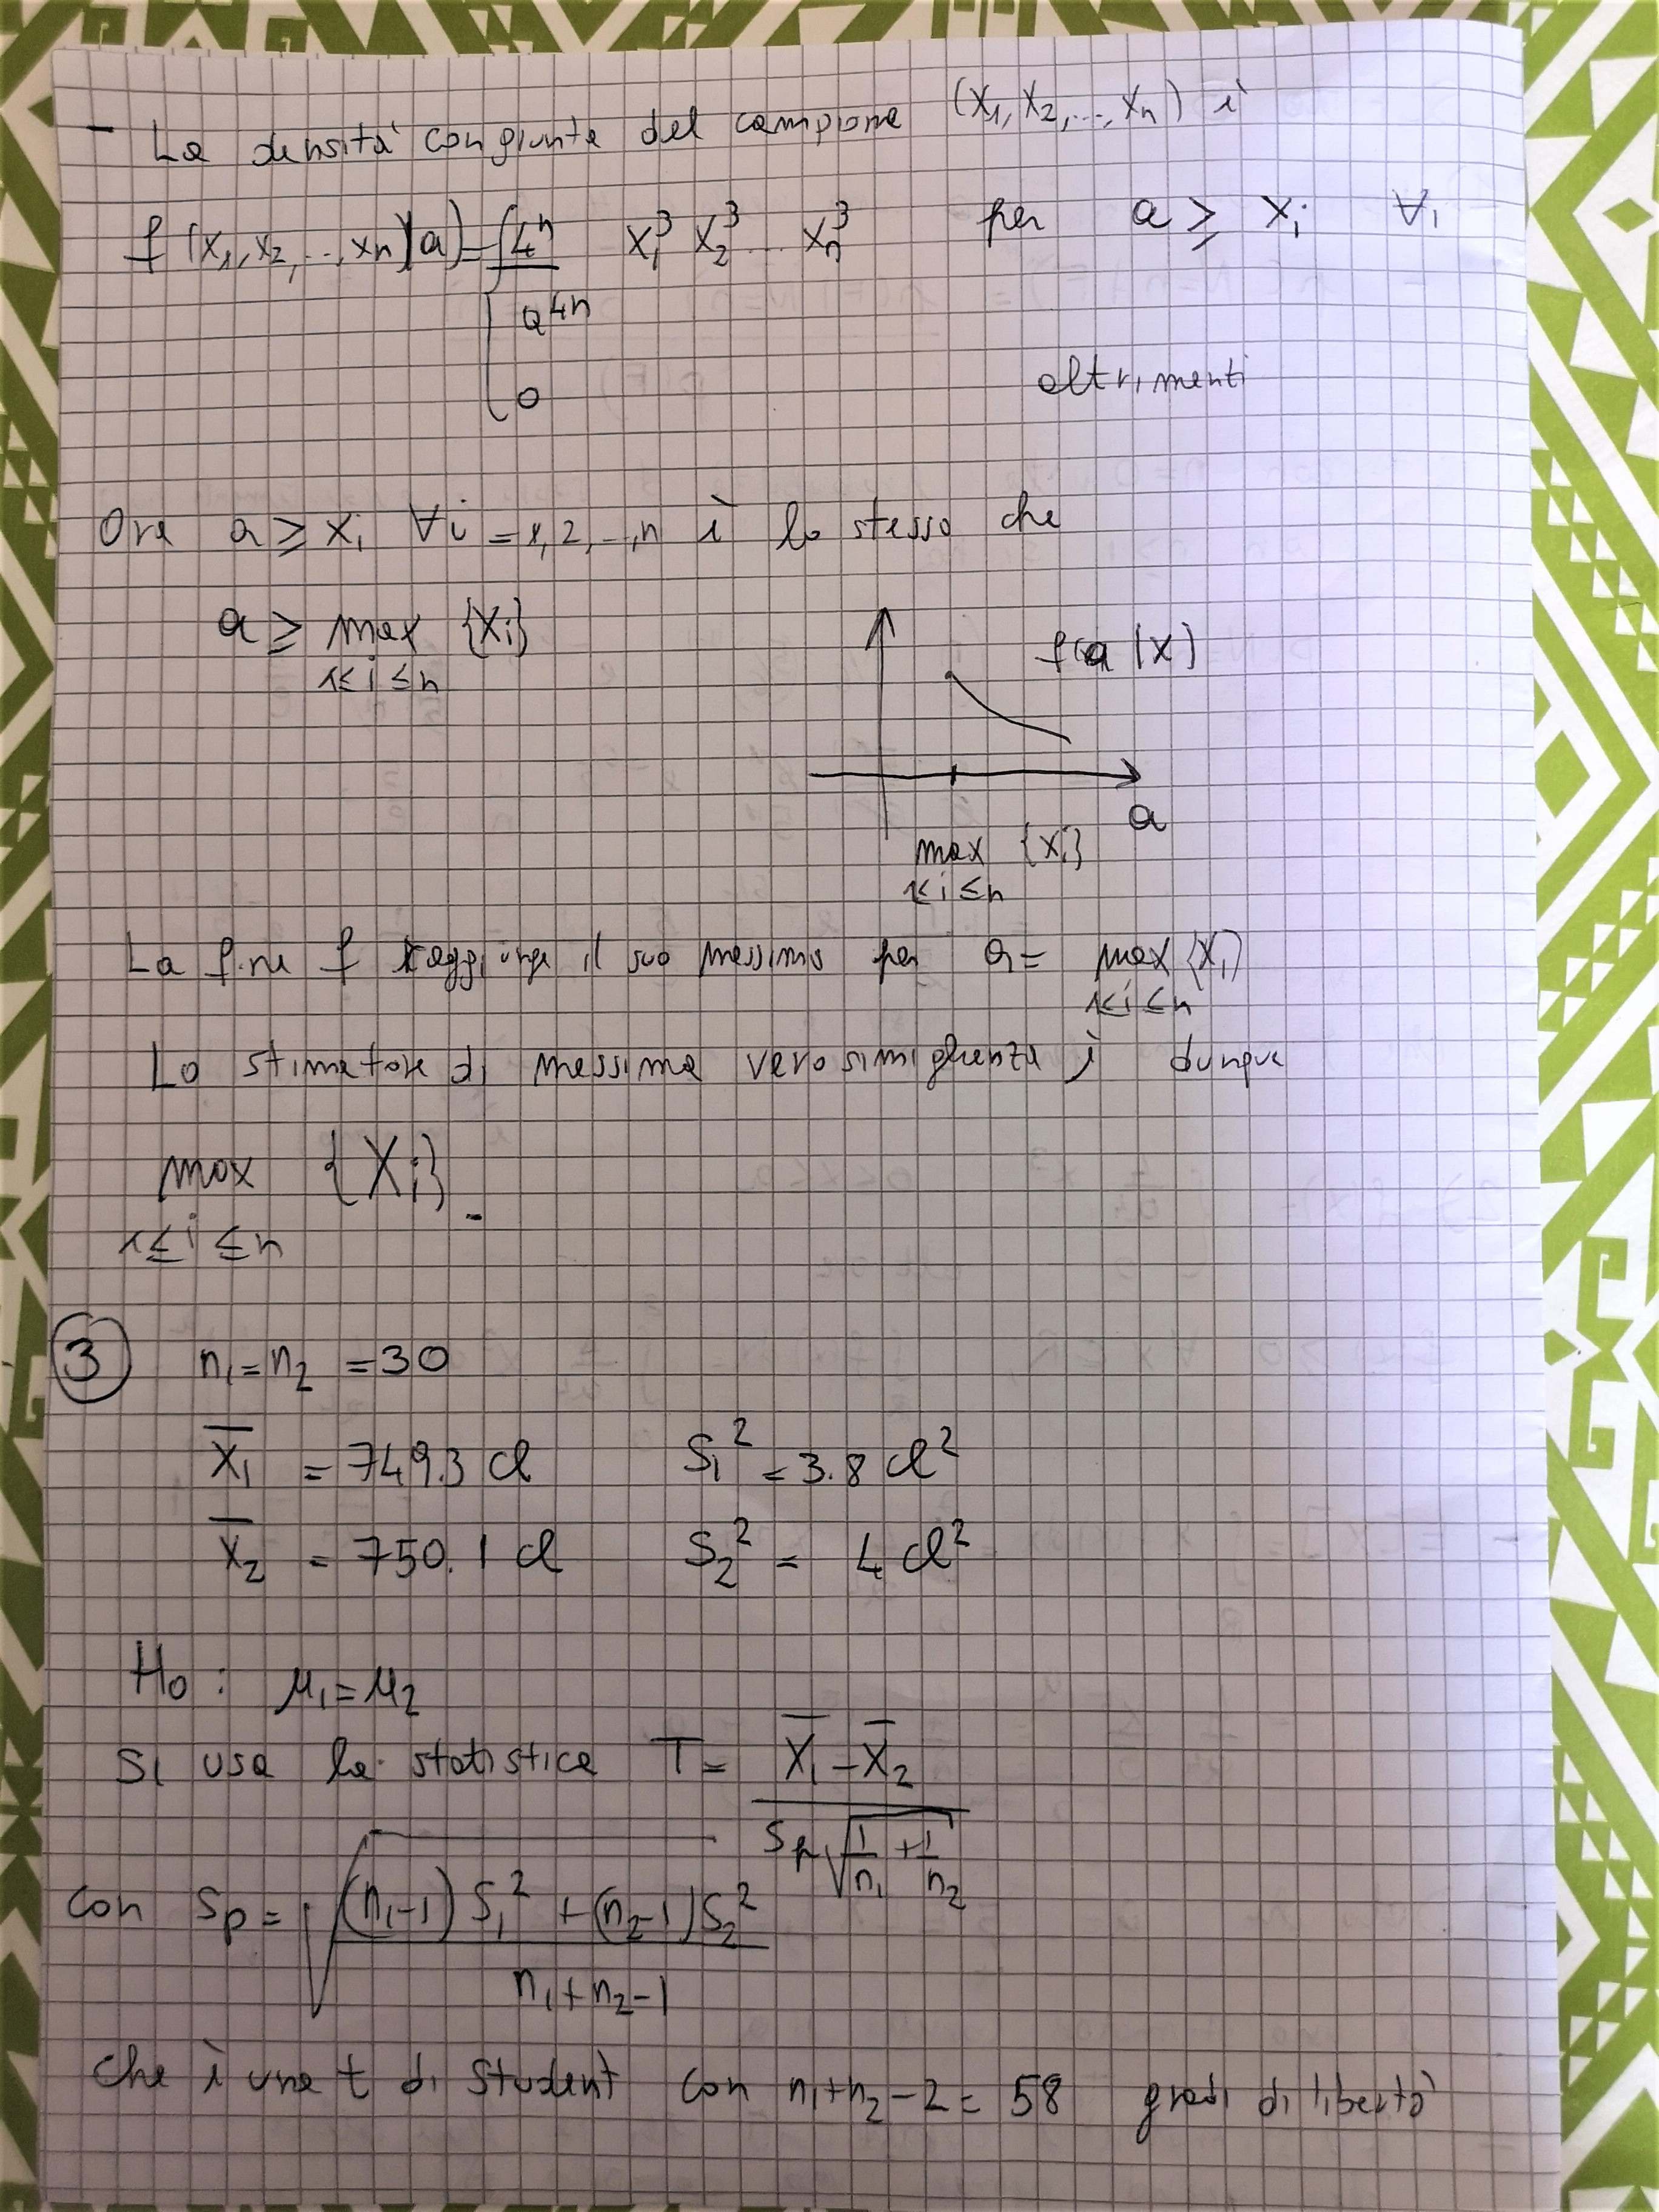 - La densità congiunta del campione (X1, X2, ..., Xn) è
f (x1, x2, ..., xn | a) = { 4^n / a^4n x1^3 x2^3 ... xn^3 per a ≥ xi ∀i
0 altrimenti
Ora a ≥ xi ∀i = 1, 2, ..., n è lo stesso che
a ≥ max {xi}
1≤i≤n
f(a |x)
a
max {xi}
1≤i≤n
La f.ne f raggiunge il suo massimo per a = max {xi}
1≤i≤n
Lo stimatore di massima verosimiglianza è dunque
max {Xi}.
1≤i≤n
3 n1 = n2 = 30
X̄1 = 749.3 cl S1^2 = 3.8 cl^2
X̄2 = 750.1 cl S2^2 = 4 cl^2
H0 : μ1 = μ2
Si usa la statistica T = X̄1 - X̄2 / Sp √(1/n1 + 1/n2)
con Sp = √((n1-1) S1^2 + (n2-1) S2^2 / n1+n2-1)
che è una t di Student con n1+n2-2 = 58 gradi di libertà